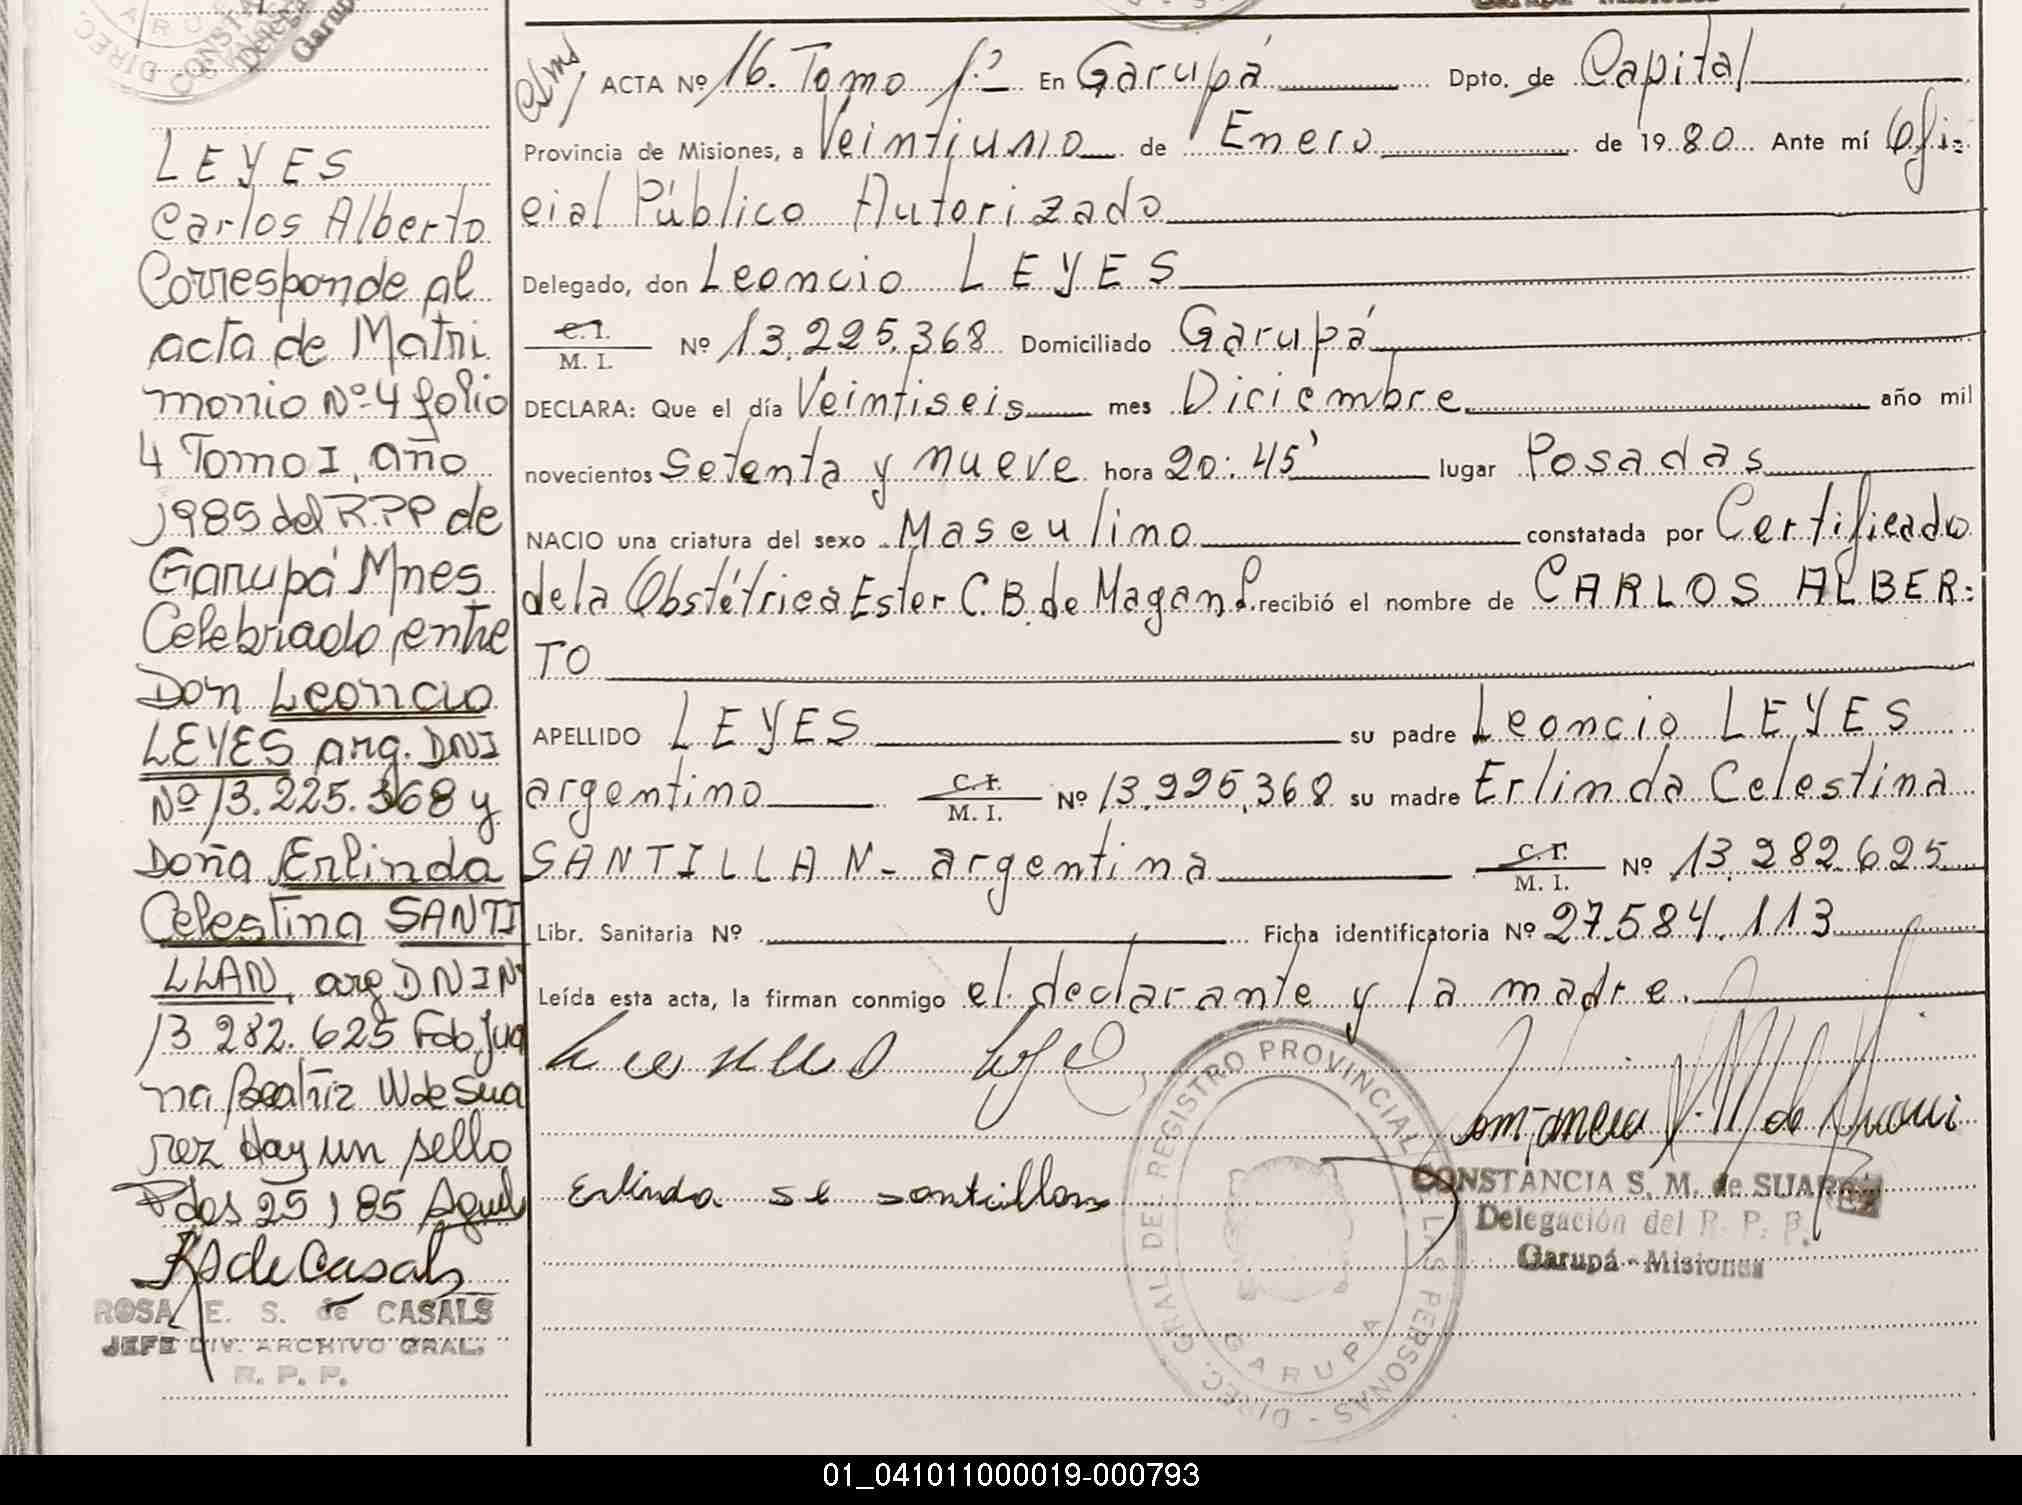 Garupá - Misiones
DIREC
CONSTA
Delega
Garup
LEYES
Carlos Alberto
Corresponde al
acta de Matri
monio Nº 4 folio
4 Tomo I, año
1985 del R.P.P de
Garupá Mnes
Celebrado entre
Don Leoncio
LEYES arg. DNI
Nº 13.225.368 y
Doña Erlinda
Celestina SANTI
LLAN, arg DNI Nº
13 282.625 Fdo Jua
na Beatriz W de Sua
rez Hay un sello
Pdas 25 1 85
R S de Casals
ROSA E. S. de CASALS
JEFE DIV. ARCHIVO GRAL.
R. P. P.
ACTA Nº 16. Tomo 1º En Garupá Dpto. de Capital
Provincia de Misiones, a Veintiuno de Enero de 1980 Ante mí Ofi-
cial Público Autorizado
Delegado, don Leoncio LEYES
C.I.
M. I. Nº 13.225.368 Domiciliado Garupá
DECLARA: Que el día Veintiseis mes Diciembre año mil
novecientos Setenta y nueve hora 20:45' lugar Posadas
NACIO una criatura del sexo Masculino constatada por Certificado
de la Obstétrica Ester C.B. de Magan recibió el nombre de CARLOS ALBER-
TO
APELLIDO LEYES su padre Leoncio LEYES
argentino C.I.
M. I. Nº 13.225.368 su madre Erlinda Celestina
SANTILLAN - argentina C.I.
M. I. Nº 13.282.625
Libr. Sanitaria Nº Ficha identificatoria Nº 27.584.113
Leída esta acta, la firman conmigo el declarante y la madre.
Erlinda se santillan
DIREC. GRAL DE REGISTRO PROVINCIAL LAS PERSONAS -
GARUPA
CONSTANCIA S. M. de SUAREZ
Delegación del R. P. P.
Garupá - Misiones
01_041011000019-000793